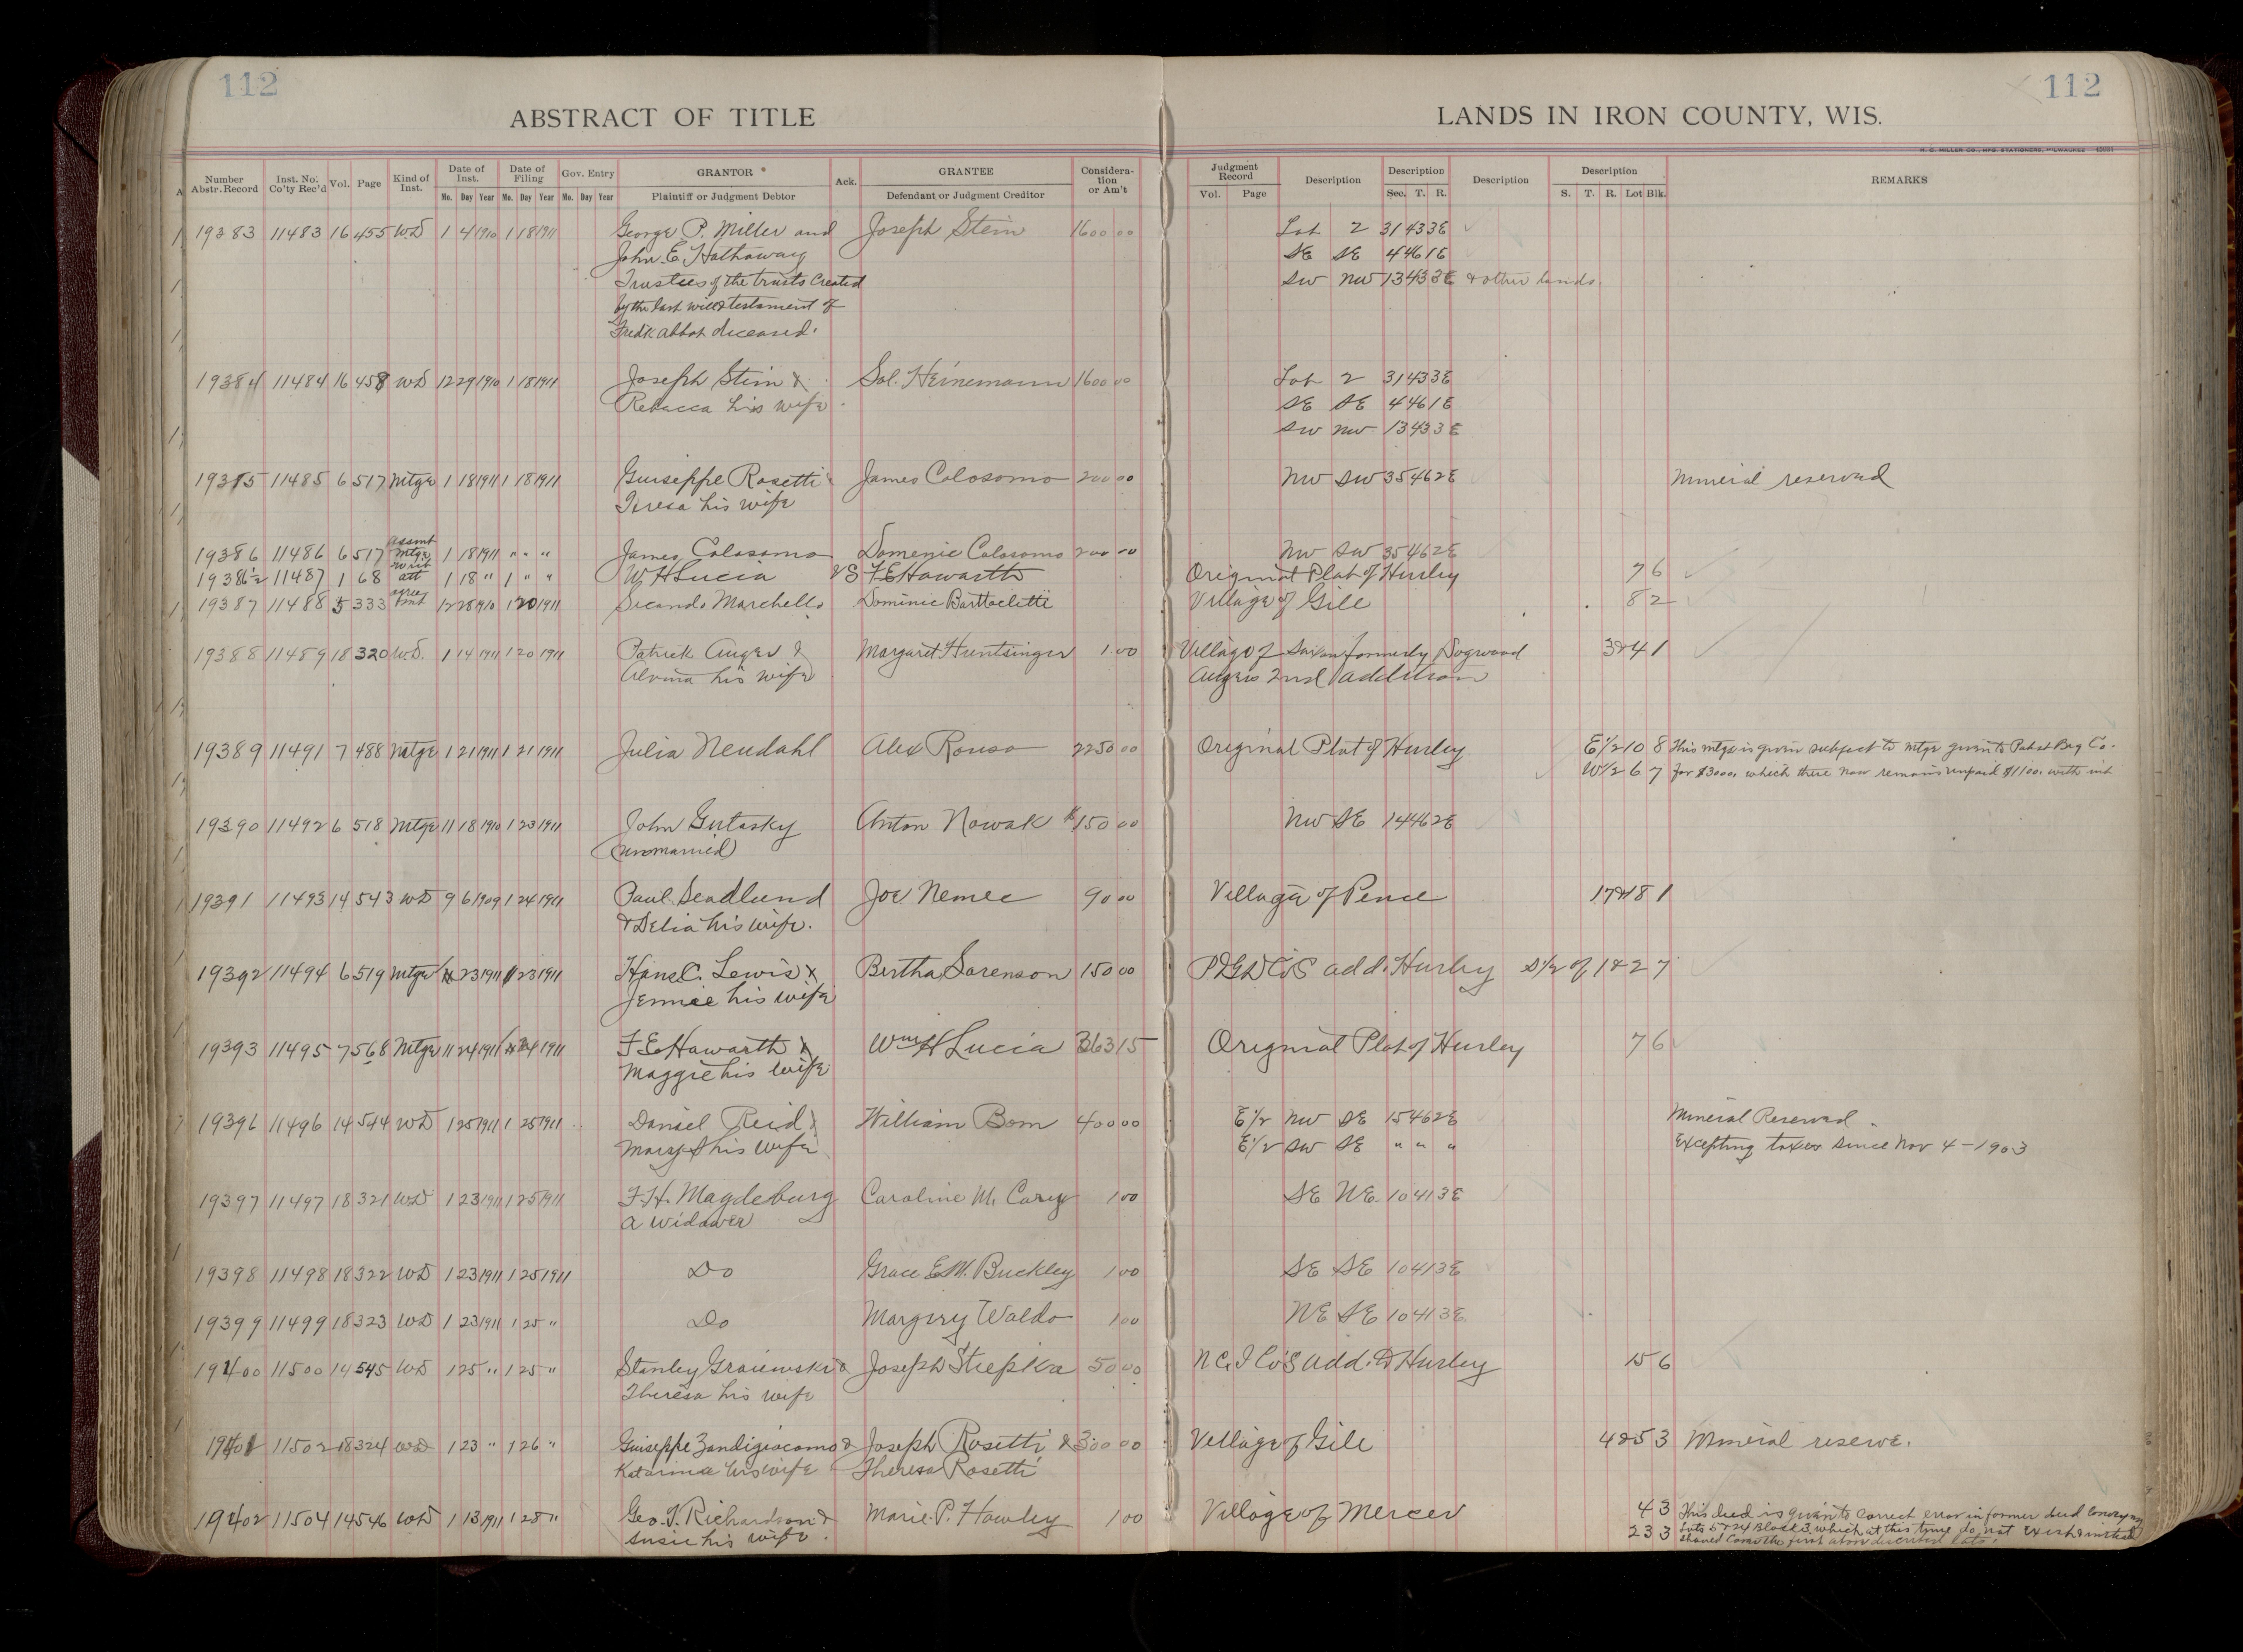 112
112
ABSTRACT OF TITLE
LANDS IN IRON COUNTY, WIS.
H. C. MILLER CO., MFG. STATIONERS, MILWAUKEE
Number Abstr. Record Inst. No. Co'ty Rec'd Vol. Page Kind of Inst. Date of Inst. Date of Filing Gov. Entry GRANTOR Ack. GRANTEE Considera-tion or Am't Judgment Record Description Description Description Description REMARKS
Mo. Day Year Mo. Day Year Mo. Day Year Plaintiff or Judgment Debtor Defendant or Judgment Creditor Vol. Page Sec. T. R. S. T. R. Lot Blk.
19383 11483 16 455 WD 1 4 1910 1 18 1911 George P. Miller and Joseph Stein 1600 00 Lot 2 31 43 3E
John E Hathaway SE SE 4 46 1E
Trustees of the trusts Created SW NW 13 43 3E & other lands.
by the last will & testament of
Fredk abbot deceased.
19384 11484 16 458 WD 12 29 1910 1 18 1911 Joseph Stein & Sol. Heinemann 1600 00 Lot 2 31 43 3E
Rebacca his wife SE SE 4 46 1E
SW NW 13 43 3E
19385 11485 6 517 Mtge 1 18 1911 1 18 1911 Guiseppe Rosetti & James Colosomo 200 00 NW SW 35 46 2E Mineral reserved
Teresa his wife
19386 11486 6 517 assmt Mtge 1 18 1911 " " " James Colosomo Domenic Colosomo 200 00 NW SW 35 46 2E
19386½ 11487 1 68 writ att 1 18 " 1 " " W H Lucia VS F E Hawarth Original Plat of Hurley 7 6
19387 11488 5 333 agreement 12 28 1910 1 20 1911 Secondo Marchello Dominic Barttoeletti Village of Gile 8 2
19388 11489 18 320 W.D. 1 14 1911 1 20 1911 Patrick Auger & Margaret Huntsinger 1 00 Village of Saxon formerly Dogwood 3&4 1
Alvina his wife Augers 2nd addition
19389 11491 7 488 Mtge 1 21 1911 1 21 1911 Julia Neudahl Alex Rouso 2250 00 Original Plat of Hurley E½ 10 8 This mtge is given subject to mtge given to Pabst Brg Co.
W½ 6 7 for $3000, which there now remains unpaid $1100. with int
19390 11492 6 518 Mtge 11 18 1910 1 23 1911 John Gutosky Anton Nowak $150 00 NW SE 14 46 2E
(unmarried)
19391 11493 14 543 WD 9 6 1909 1 24 1911 Paul Seadlund Joe Nemec 90 00 Village of Pence 17&18 1
& Delia his wife.
19392 11494 6 519 Mtge 1 23 1911 1 23 1911 Hans C. Lewis & Bertha Sorenson 150 00 P D G D Co's add. Hurley S½ of 1&2 7
Jennie his wife
19393 11495 7 568 Mtge 11 24 1911 1 24 1911 F E Hawarth & Wm H Lucia 363 15 Original Plat of Hurley 7 6
Maggie his wife
19396 11496 14 544 WD 1 25 1911 1 25 1911 Daniel Reid & William Bom 400 00 E½ NW SE 15 46 2E Mineral Reserved
Mary A his wife E½ SW SE " " " Excepting taxes since Nov 4-1903
19397 11497 18 321 WD 1 23 1911 1 25 1911 F. H. Magdeburg Caroline M. Carey 1 00 SE NE 10 41 3E
a widower
19398 11498 18 322 WD 1 23 1911 1 25 1911 Do Grace E M. Buckley 1 00 SE SE 10 41 3E
19399 11499 18 323 WD 1 23 1911 1 25 " Do Margery Waldo 1 00 NE SE 10 41 3E
19400 11500 14 545 WD 1 25 " 1 25 " Stanley Graiewski & Joseph Strepka 50 00 N C. I Co's add. to Hurley 15 6
Theresa his wife
19401 11502 18 324 WD 1 23 " 1 26 " Guiseppe Zandigiacomo & Joseph Rosetti & 300 00 Village of Gile 4&5 3 Mineral reserve.
Katarina his wife Theresa Rosetti
19402 11504 14 546 WD 1 13 1911 1 28 " Geo. T. Richardson & Marie P. Hawley 1 00 Village of Mercer 4 3 This deed is given to correct error in former deed conveying
Susie his wife. 23 3 Lots 5 & 24 Block 3, which at this time do not exist & instead
should cover the first above described lots.